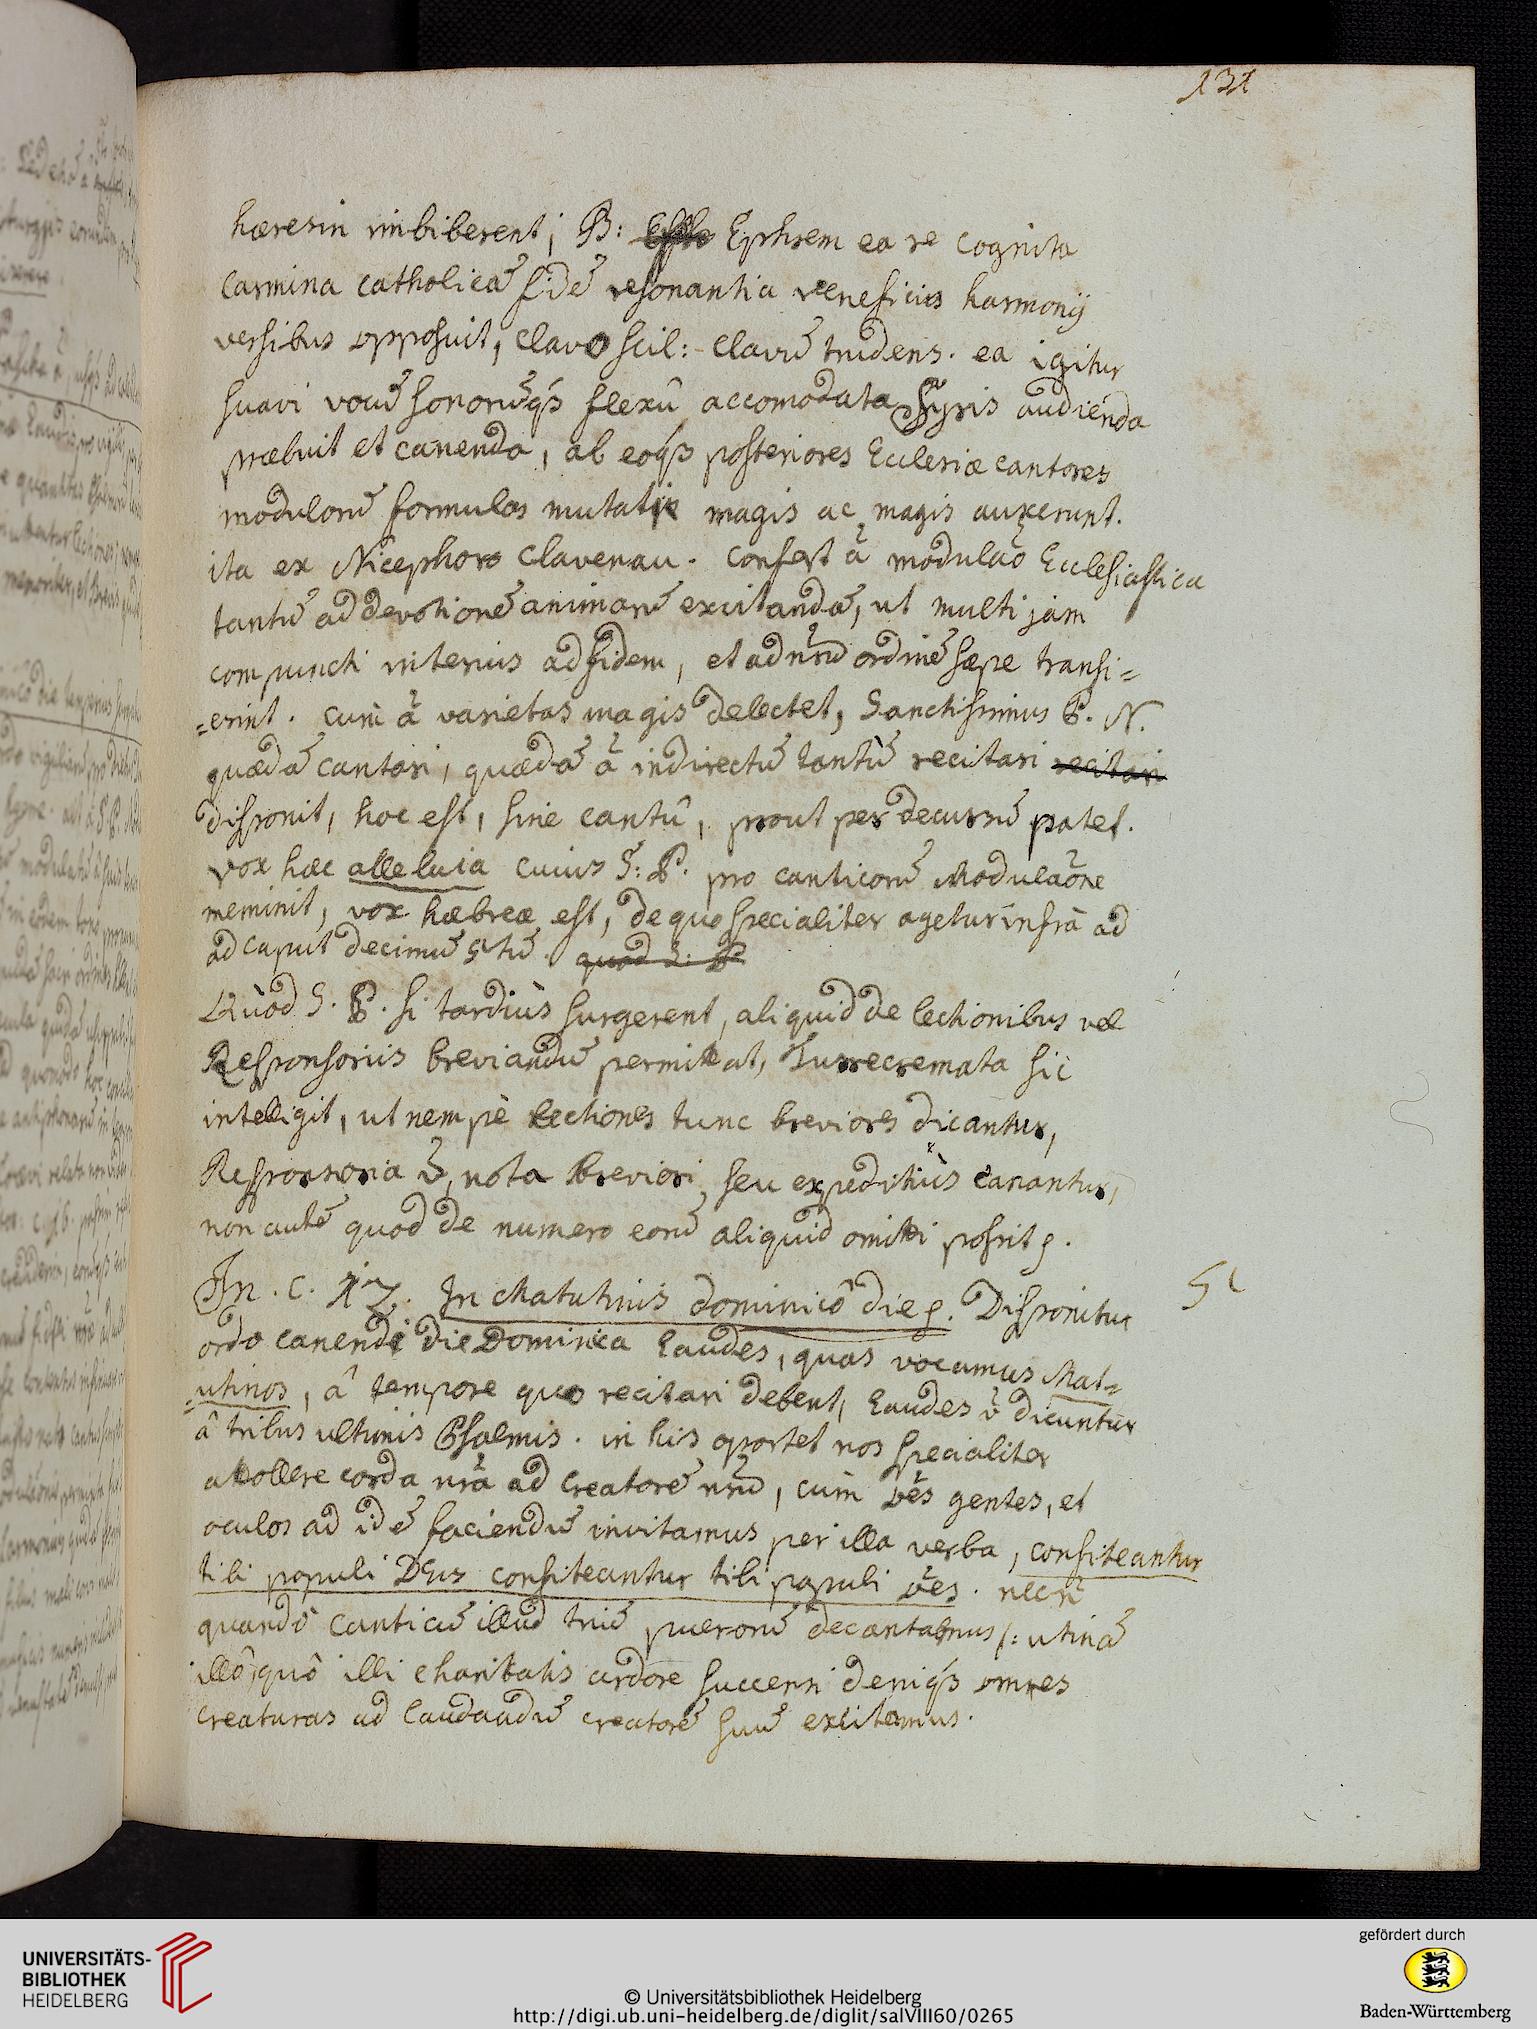 131
hæresin imbiberent; B: Ephrem ea re cognita
carmina catholicã fidẽ resonantia veneficiis harmonij
versibus opposuit, clavo scil: clavũ trudens. ea igitur
suavi vocũ sonorũq́3 flexû accomodata Syris audienda
præbuit et canenda, ab eoq́3 posteriores Ecclesiæ cantores
modulorũ formulas mutatis magis ac magis auxerunt.
ita ex Nicephoro Clavenau. Confert ã modulaõ Ecclesiastica
tantũ ad devotionẽ animarũ excitandã, ut multi jam
compuncti interius ad fidem, et ad nrũ ordinẽ sæpe transi=
=erint. cum ã varietas magis delectet, Sanctissimus P. N.
quædã cantari, quædã ã indirectũ tantũ recitari recitari
disponit, hoc est, sine cantû, prout per decursũ patet.
vox hæc alleluia cuius S: P. pro canticorũ Modulaõne
meminit, vox hæbreæ est, de quo specialiter agetur infrà ad
ad caput decimũ 5tũ. quod S: P.
Quòd S. P. si tardiùs surgerent, aliquid de lectionibus vel
Responsoriis breviandũ permittat, Turrecremata sic
intelligit, ut nempè lectiones tunc breviores dicantur,
Responsoria v̉, nota breviori seu expeditiùs canantur,
non autẽ quod de numero eorũ aliquid omitti possit ꝯ.
In. C. 12. In Matutinis dominicô die ꝯ. Disponitur
51
ordo canendi die Dominica Laudes, quas vocamus Mat=
=utinos, â tempore quo recitari debent, Laudes v̉ dicuntur
â tribus ultimis Psalmis. in his oportet nos specialiter
attollere corda nrã ad Creatorẽ nrũ, cùm oẽs gentes, et
oculos ad idẽ faciendũ invitamus per illa verba, confiteantur
tibi populi DEus confiteantur tibi populi oẽs. necñ
quandõ Canticũ illud triũ puerorũ decantamus /: utinã
illô, quô illi charitatis ardore succensi deniq́3 omnes
creaturas ad laudandũ creatorẽ suũ excitamus.
UNIVERSITÄTS-
BIBLIOTHEK
HEIDELBERG
© Universitätsbibliothek Heidelberg
http://digi.ub.uni-heidelberg.de/diglit/salVIII60/0265
gefördert durch
Baden-Württemberg